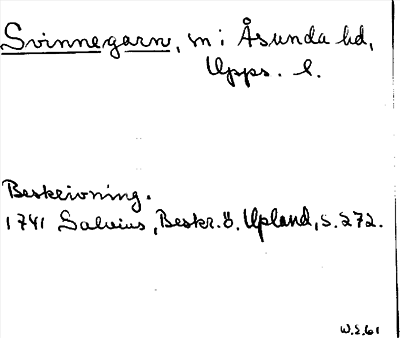 Svinnegarn, sn i Åsunda hd,
Upps. l.
Beskrivning.
1741 Salvius, Beskr. ö. Upland, s. 272.
W.E.61